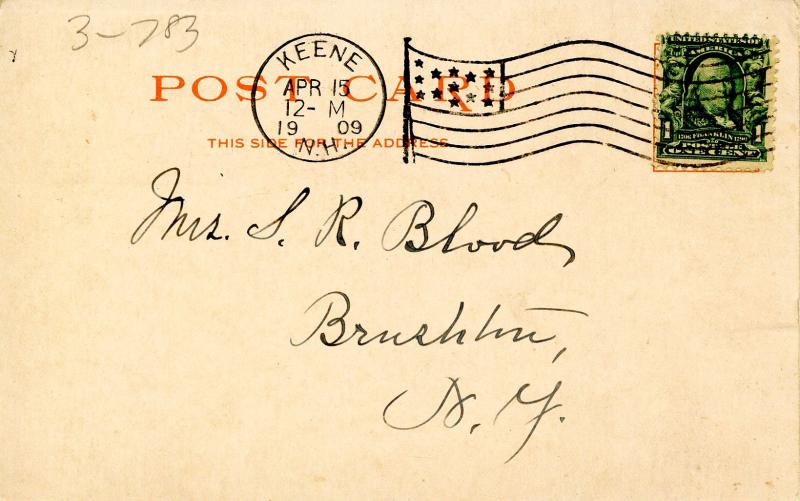 3-783
POST CARD
THIS SIDE FOR THE ADDRESS
KEENE
APR 15
12- M
19 09
N.H.
UNITED STATES OF
AMERICA
1706 FRANKLIN 1790
POSTAGE
1 ONE CENT 1
Mrs. S. R. Blood
Brushton,
N. Y.